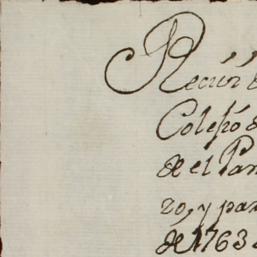 Recivi
Colexio
de el Par
zo, y par
de 1763